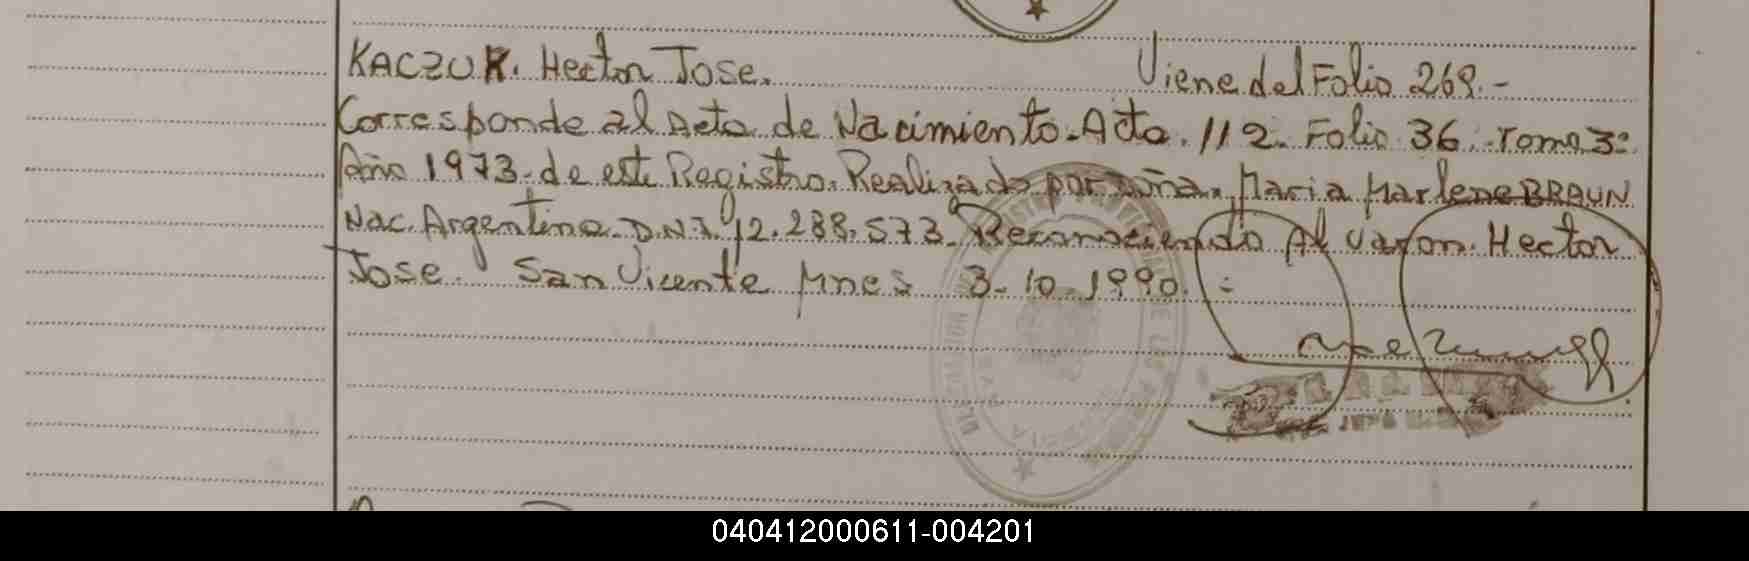 KACZUK. Hector Jose. Viene del Folio 268.-
Corresponde al Acta de Nacimiento. Acta. 112. Folio 36. Tomo 3º
Año 1973. de este Registro. Realizado por doña. Maria Marlene BRAUN
Nac. Argentina. D.N.I. 12.288.573. Reconociendo Al varon. Hector
Jose. San Vicente Mnes 3-10-1990. -
040412000611-004201